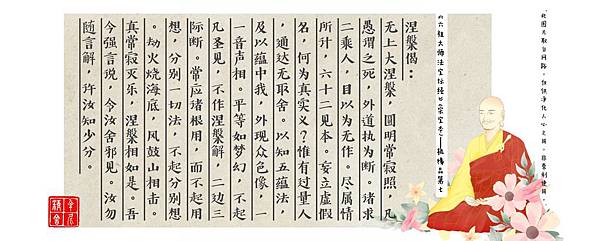 此图片取自网路，仅供净化人心之用，非营利使用。
六祖大师法宝坛经 宗宝本——机缘品第七
涅槃偈：
无上大涅槃，圆明常寂照，凡
愚谓之死，外道执为断。诸求
二乘人，目以为无作。尽属情
所计，六十二见本。妄立虚假
名，何为真实义？惟有过量人
，通达无取舍。以知五蕴法，
及以蕴中我，外现众色像，一
一音声相。平等如梦幻，不起
凡圣见，不作涅槃解，二边三
际断。常应诸根用，而不起用
想，分别一切法，不起分别想
。劫火烧海底，风鼓山相击。
真常寂灭乐，涅槃相如是。吾
今强言说，令汝舍邪见。汝勿
随言解，许汝知少分。